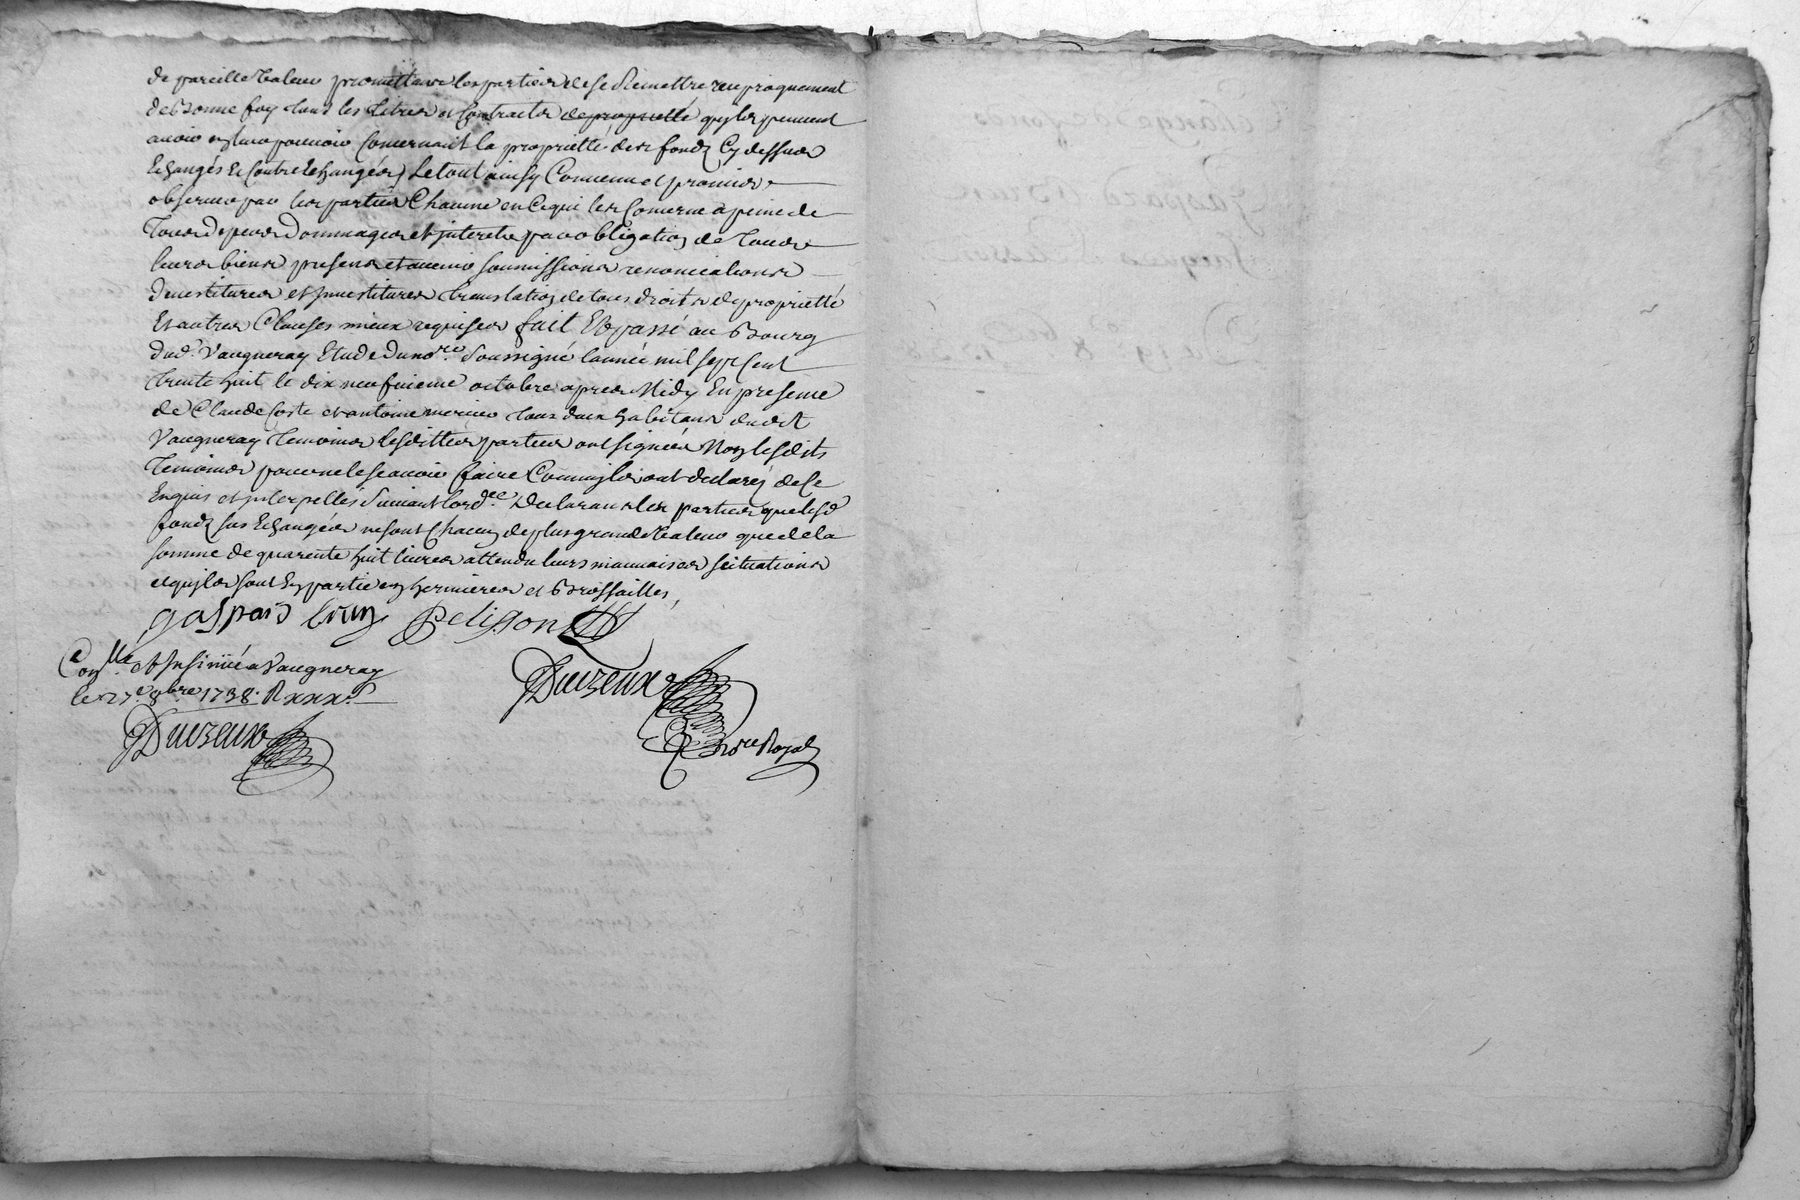 de pareille valeur promettant les parties de se Remettre reciproquement
de Bonne foy tous les titres et Contracts de proprietté qu'ils peuvent
avoir en leur pouvoir Concernant la proprietté des fondz Cy dessus
Echangés Et Contre Echangés, Le tout ainsy Convenu et promis
observer par les parties Chacune en Ce qui les Concerne a peine de
Tous Depens Dommages et interets par obligation de Tous
leurs biens presens et avenir soumissions renonciations
Devestitures et Jnvestitures translation de tous droits de proprietté
Et autres Clauses mieux requises fait Et passé au Bourg
dud. Vaugneray Etude du no.re soussigné l'année mil sept Cent
trente huit le dix neufvieme octobre apres Midy En presence
de Claude Coste et antoine mercier tous deux habitans dudit
Vaugneray temoins Lesdittes parties ont signées Non lesdits
temoins pour ne le scavoir faire Comm'ils ont declaréz de Ce
Enquis et jnterpellés Suivant l'ord.ce Declarant les parties que lesd
fondz sus Echangés ne sont Chacun de plus grande valeur que de la
somme de quarente huit livres attendu leurs mauvaises scituations
et qu'ils sont En partie en hermieres et Brossailles,
gaspard brun Pelisson
Con.lle et Jnsinüé a Vaugneray
le 27.e 8bre 1738. R xxx.s
Duvzeux
Duvzeux
No.re Royal
Echange de fonds
Gaspard Brun
Jacques
Du 19 8